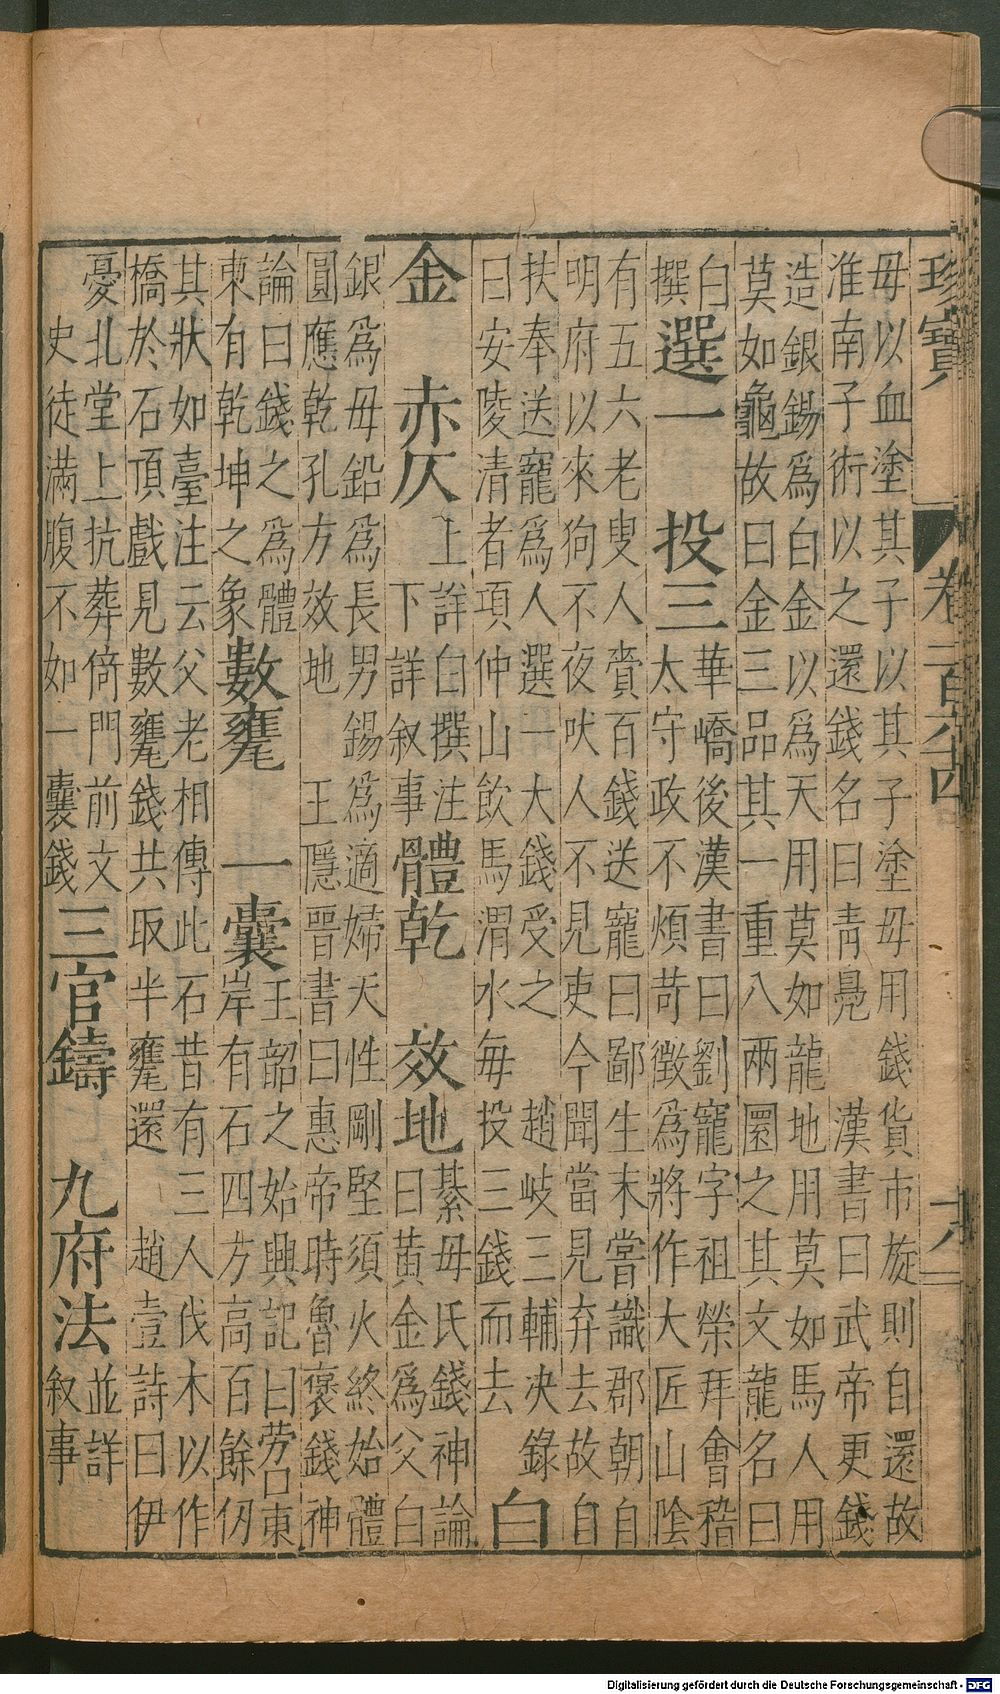 珍寶　卷一百六十四　十八
毋以血塗其子以其子塗毋用錢貨市旋則自還故
淮南子術以之還錢名曰靑鳧　漢書曰武帝更錢
造銀錫爲白金以爲天用莫如龍地用莫如馬人用
莫如龜故曰金三品其一重八兩圜之其文龍名曰
白
撰
選一　投三
華嶠後漢書曰劉寵字祖榮拜會稽
太守政不煩苛徵爲將作大匠山陰
有五六老叟人賫百錢送寵曰鄙生未嘗識郡朝自
明府以來狗不夜吠人不見吏今聞當見弃去故自
扶奉送寵爲人選一大錢受之　趙岐三輔决錄
曰安陵清者項仲山飲馬渭水每投三錢而去
白
金　赤仄
上詳白撰注
下詳叙事
體乾　效地
綦毋氏錢神論
曰黃金爲父白
銀爲毋鉛爲長男錫爲適婦天性剛堅須火終始體
圓應乾孔方效地　王隱晉書曰惠帝時魯褒錢神
論曰錢之爲體
東有乾坤之象
數甕　一囊
王韶之始興記曰勞口東
岸有石四方高百餘仞
其狀如臺注云父老相傳此石昔有三人伐木以作
橋於石頂戲見數甕錢共取半甕還　趙壹詩曰伊
憂北堂上抗葬倚門前文
史徒滿腹不如一囊錢
三官鑄　九府法
並詳
叙事
Digitalisierung gefördert durch die Deutsche Forschungsgemeinschaft - DFG